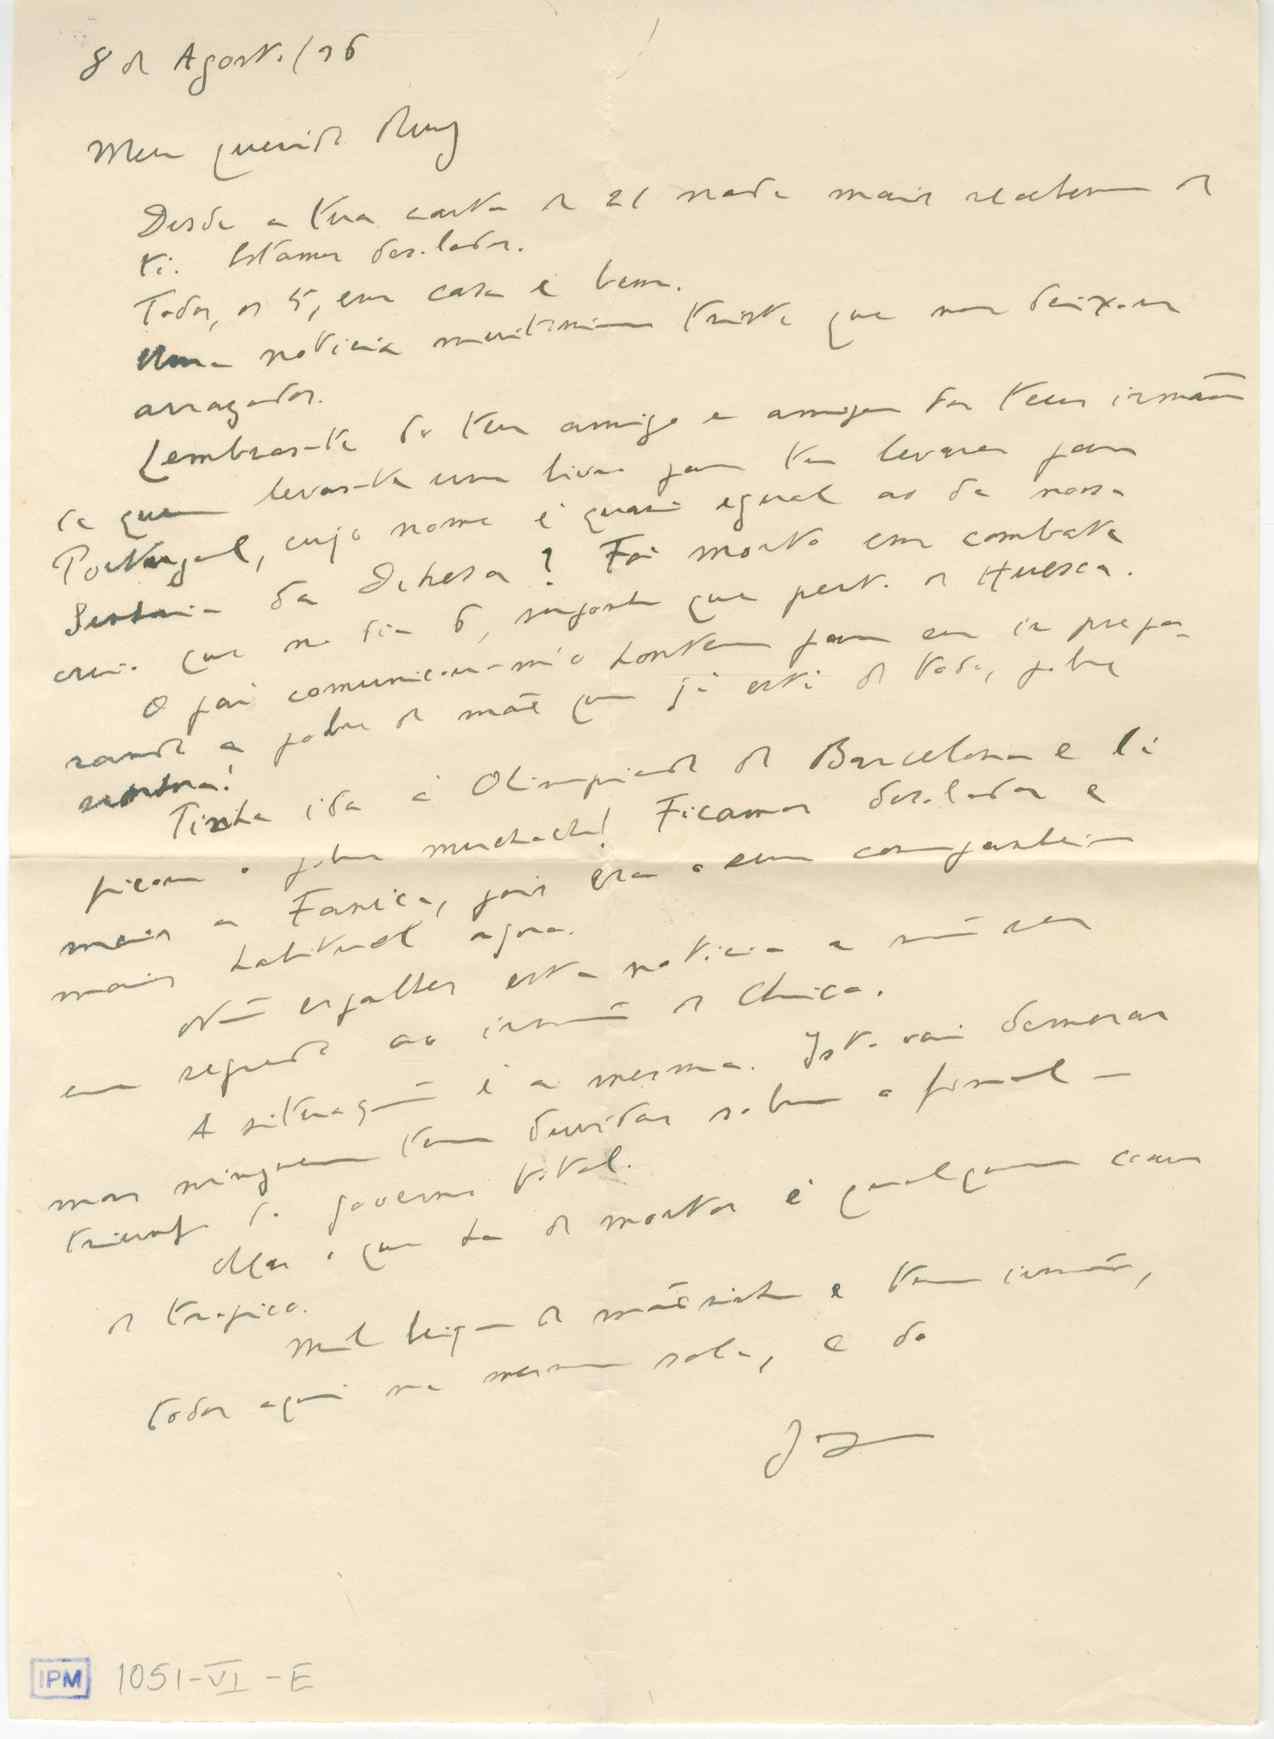 8 de Agosto/36
Meu querido Ruy
Desde a tua carta de 21 nada mais recebemos de
ti. Estamos desolados.
Todos, os 5, em casa e bem.
Uma noticia muitissimo triste que nos deixou
arrazados.
Lembras-te do teu amigo e amigo dos teus irmãos
a quem levaste um livro para tu levares para
Portugal, cujo nome é quasi egual ao da nossa
da Dehesa? Foi morto em combate
creio que no dia 6, suponho que perto de Huesca.
O pai comunicou-m'o hontem para eu ir prepa-
rando a pobre de mãe que já está de todo, pobre
senhora!
Tinha ido á Olimpiada de Barcelona e lá
ficou o pobre muchacho! Ficamos desolados e
mais a Fanica, pois era o seu companheiro
mais habitual agora.
Não espalhes esta noticia a não ser
em segredo ao irmão de Chica.
A situação é a mesma. Isto vai demorar
mas ninguem tem duvidas sobre o final –
triunfo do governo total.
Mas o que ha de mortos é qualquer coisa
de tragico.
Mil beijos de mãesinha e teus irmãos,
todos aqui na mesma sala, e do
IPM 1051-VI-E